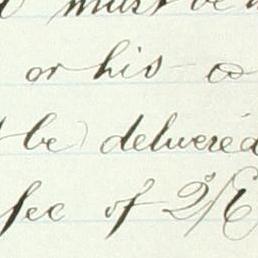 must be
or his co
be) delivered
fee of 2/6